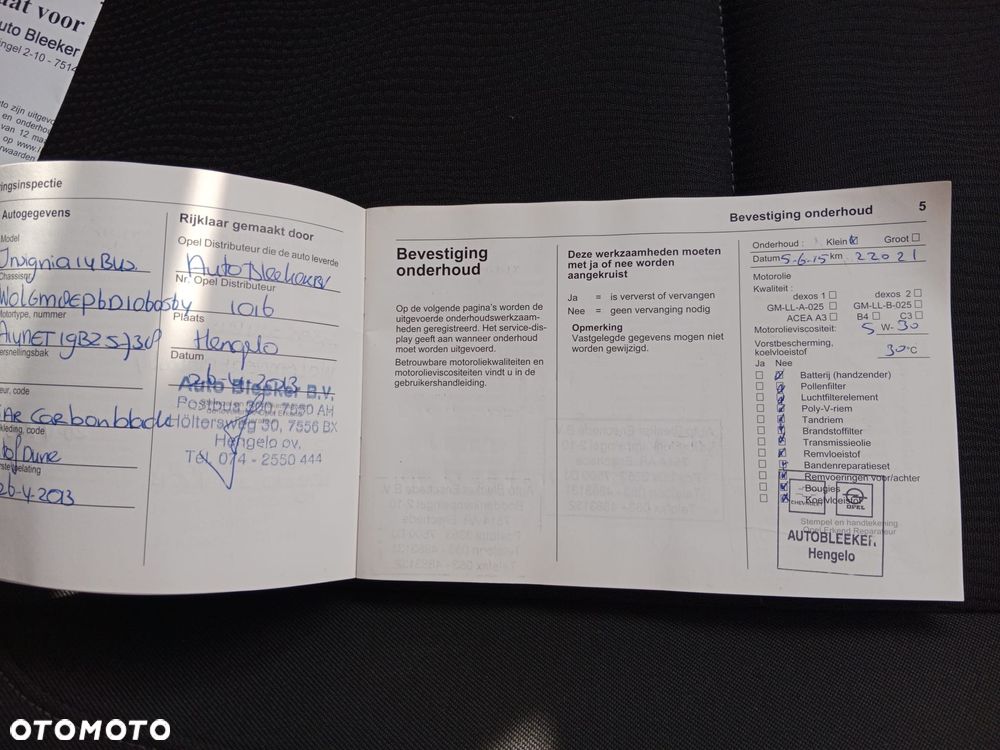 at voor
uto Bleeker
ingel 2-10 - 7514
to zijn uitgevo
en onderho
van 12 ma
op www.
rwaarden
ringsinspectie
Autogegevens
Model
Insignia 1.4 Bus.
Chassisnr.
Motortype, nummer
ersnellingsbak
eur, code
Carbonblack
kleding, code
Dune
rste toelating
26-4-2013
Rijklaar gemaakt door
Opel Distributeur die de auto leverde
Auto Bleeker BV
Nr. Opel Distributeur
1016
Plaats
Hengelo
Datum
26-4-2013
Auto Bleeker B.V.
Postbus 300, 7550 AH
Höltersweg 30, 7556 BX
Hengelo ov.
Tel. 074 - 2550 444
Bevestiging
onderhoud
Op de volgende pagina's worden de
uitgevoerde onderhoudswerkzaam-
heden geregistreerd. Het service-dis-
play geeft aan wanneer onderhoud
moet worden uitgevoerd.
Betrouwbare motoroliekwaliteiten en
motorolieviscositeiten vindt u in de
gebruikershandleiding.
Deze werkzaamheden moeten
met ja of nee worden
aangekruist
Ja = is ververst of vervangen
Nee = geen vervanging nodig
Opmerking
Vastgelegde gegevens mogen niet
worden gewijzigd.
Bevestiging onderhoud 5
Onderhoud : Klein Groot
Datum 5-6-15 km 22021
Motorolie
Kwaliteit : dexos 1 dexos 2
GM-LL-A-025 GM-LL-B-025
ACEA A3 B4 C3
Motorolieviscositeit: 5 W- 30
Vorstbescherming,
koelvloeistof 30 °C
Ja Nee
Batterij (handzender)
Pollenfilter
Luchtfilterelement
Poly-V-riem
Tandriem
Brandstoffilter
Transmissieolie
Remvloeistof
Bandenreparatieset
Remvoeringen voor/achter
Bougies
Koelvloeistof
CHEVROLET OPEL
Stempel en handtekening
Opel Erkend Reparateur
AUTOBLEEKER
Hengelo
OTOMOTO